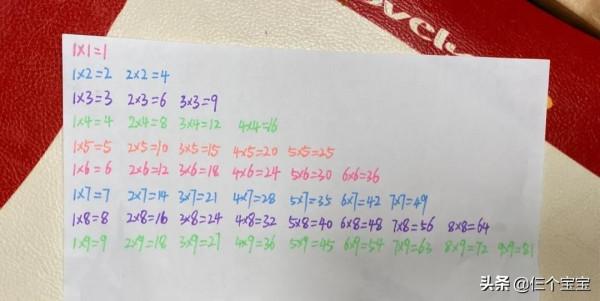 ovel
1×1=1
1×2=2 2×2=4
1×3=3 2×3=6 3×3=9
1×4=4 2×4=8 3×4=12 4×4=16
1×5=5 2×5=10 3×5=15 4×5=20 5×5=25
1×6=6 2×6=12 3×6=18 4×6=24 5×6=30 6×6=36
1×7=7 2×7=14 3×7=21 4×7=28 5×7=35 6×7=42 7×7=49
1×8=8 2×8=16 3×8=24 4×8=32 5×8=40 6×8=48 7×8=56 8×8=64
1×9=9 2×9=18 3×9=27 4×9=36 5×9=45 6×9=54 7×9=63 8×9=72 9×9=81
头条 @仨个宝宝